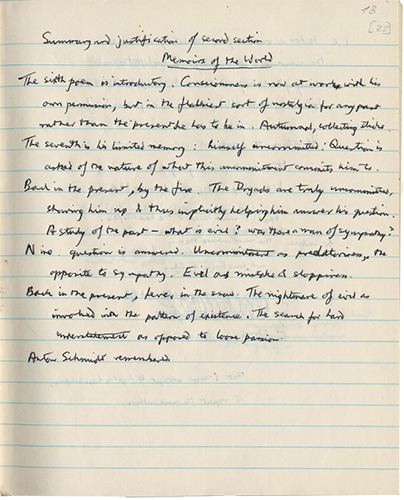 13
[23]
Summary and justification of second section
Memoirs of the World
The sixth poem is introductory. Consciousness is now at work with his
own permission, but in the flabbiest sort of nostalgia for any past
rather than the present he has to be in. Autumnal, collecting sticks.
The seventh is his limited memory: himself uncommitted: Question is
asked of the nature of what this uncommitment commits him to.
Back in the present, by the fire. The Dryads are truly uncommitted,
showing him up & thus implicitly helping him answer his question.
A study of the past – what is evil? was there a man of sympathy?
Nine: question is answered. Uncommitment as predatoriness, the
opposite to sympathy. Evil as mistake & sloppiness.
Back in the present, fever, in the snow. The nightmare of evil as
involved with the pattern of existence. The search for hard
understatement as opposed to loose passion.
Anton Schmidt remembered